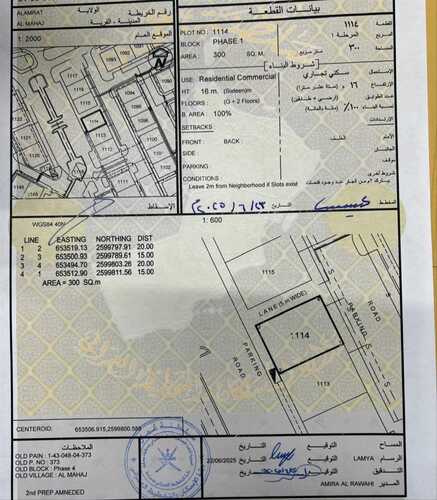 ALAMRAT
AL MAHAJ
الولاية
المدينة - القرية
رقم الخريطة
1: 2000
الموقع العام
1114
1113
1115
بيانات القطعة
PLOT NO : 1114
القطعة ١١١٤
BLOCK : PHASE 1
المرحلة ١
AREA : 300 SQ. M.
٣٠٠ متر مربع
( شروط البناء )
USE : Residential Commercial
سكني تجاري
الاستعمال
HT : 16 m. (Sixteen)m
١٦ ( ستة عشر مترا )
الارتفاع
FLOORS : (G + 2 Floors)
( أرضي + طابقين )
عدد الطوابق
B. AREA : 100%
١٠٠٪ ( مائة بالمائة )
نسبة البناء
SETBACKS
الارتدادات
FRONT : BACK :
الخلف
SIDE :
PARKING :
CONDITIONS :
شروط أخرى
Leave 2m from Neighborhood if Slots exist
المخطط
التاريخ
الإسقاط
WGS84 40N
1: 600
LINE EASTING NORTHING DIST
1 2 653519.13 2599797.91 20.00
2 3 653500.93 2599789.61 15.00
3 4 653494.70 2599803.26 20.00
4 1 653512.90 2599811.56 15.00
AREA = 300 SQ.m
1115
LANE (5 m WIDE)
1114
1113
PARKING
ROAD
PARKING
ROAD
CENTEROID: 653506.915,2599800.585
الملاحظات
OLD PAIN : 1-43-048-04-373
OLD P. NO : 373
OLD BLOCK : Phase 4
OLD VILLAGE : AL MAHAJ
2nd PREP AMNEDED
22/06/2025
التاريخ
التوقيع
المساح
التاريخ
التوقيع
LAMYA
التدقيق
التاريخ
التوقيع
المدير
AMIRA AL RAWAHI